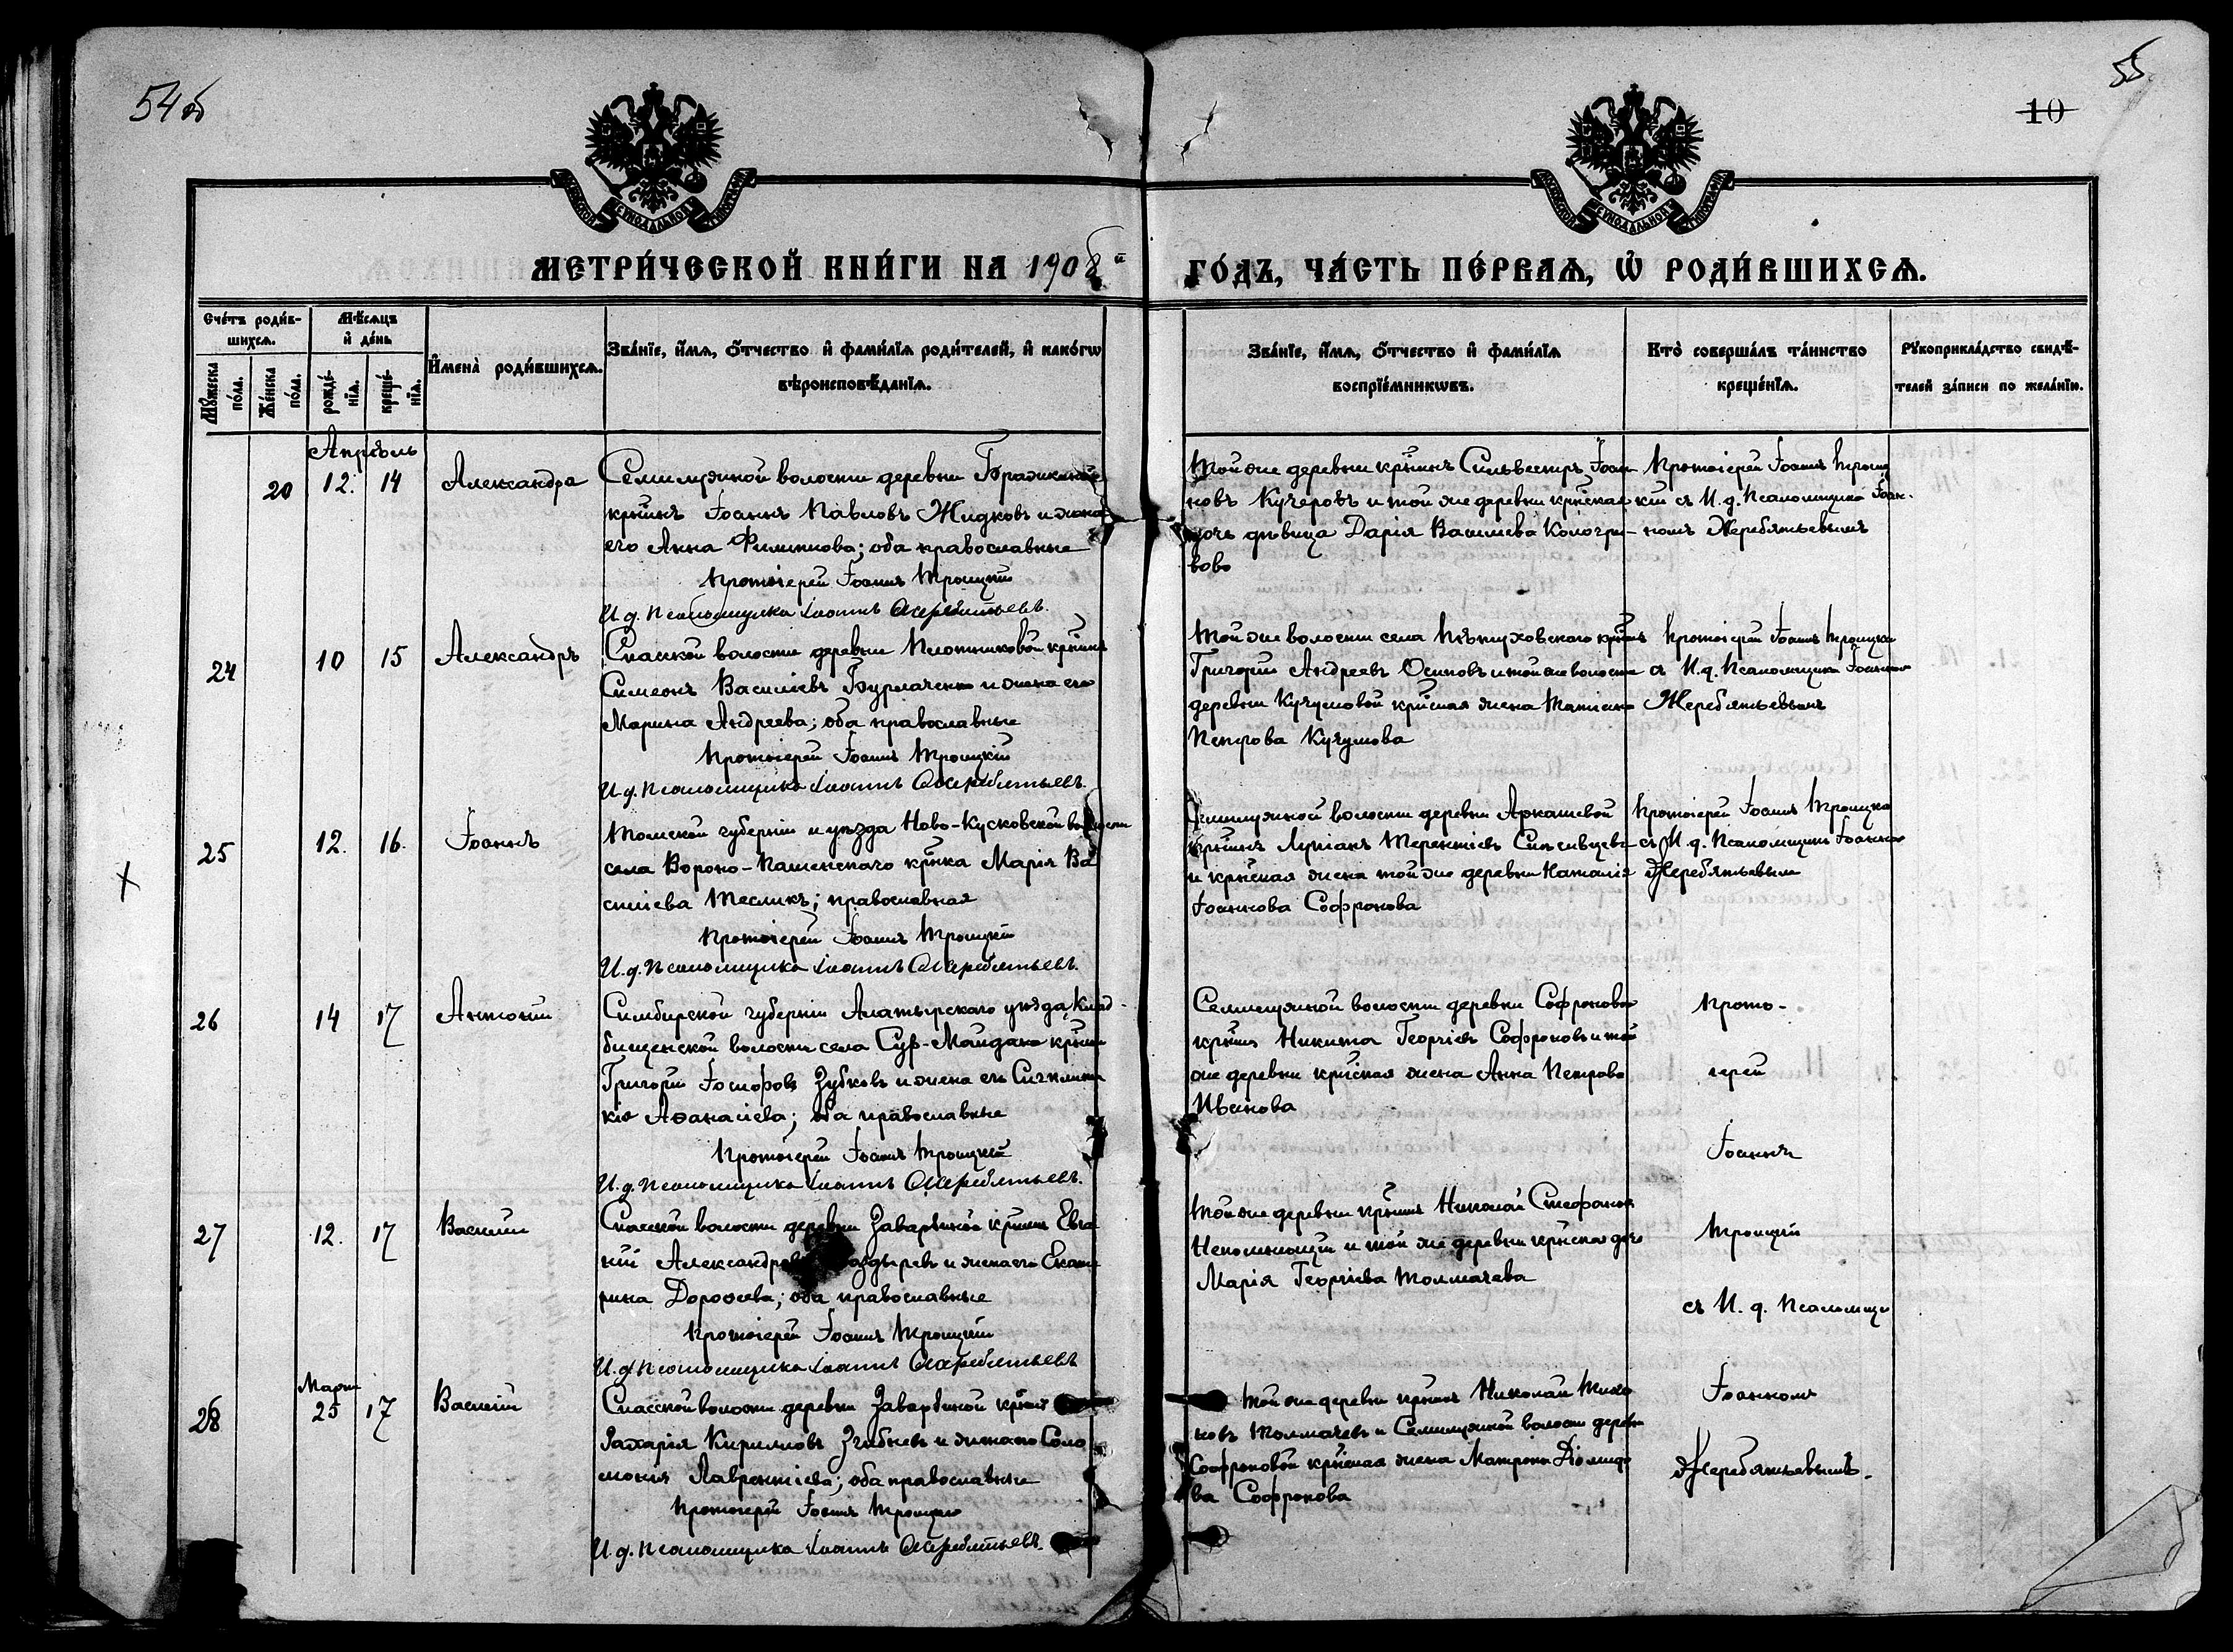 54об
55
10
МЕТРИ́ЧЕСКОЙ КНИ́ГИ НА 1908й ГО́ДЪ, ЧА́СТЬ ПЕ́РВАѦ, Ѽ РОДИ́ВШИХСѦ.
Сче́тъ роди́в-
шихсѧ.
Мꙋ́жеска
по́ла.
Же́нска
по́ла.
Мѣ́сѧцъ
и҆ де́нь
рожде́-
нїѧ.
креще́-
нїѧ.
И҆мена̀ роди́вшихсѧ.
Зва́нїе, и҆́мѧ, ѻ҆́тчество и҆ фами́лїѧ роди́телей, и҆ како́гѡ
вѣроисповѣ́данїѧ.
Зва́нїе, и҆́мѧ, ѻ҆́тчество и҆ фами́лїѧ
воспрїе́мникѡвъ.
Кто̀ соверша́лъ та́инство
креще́нїѧ.
Рꙋкоприкла́дство свидѣ́-
телей за́писи по жела́нїю.
Апрѣль
20 12. 14 Александра
Семилужной волости деревни
кр-нинъ Іоаннъ Павловъ Жидковъ и жена
его Анна Филиппова; оба православные
Протоіерей Іоаннъ Троицкій
И.д. Псаломщика Іоаннъ Жеребятьевъ.
Той же деревни кр-нинъ Сильвестръ Іоан-
новъ Кучеровъ и той же деревни кр-нская
дочь дѣвица Дарія Васильева Кологри-
вова
Протоіерей Іоаннъ Троиц-
кій съ И.д. Псаломщика Іоан-
номъ Жеребятьевымъ
24 10 15 Александръ
Спасской волости деревни Плотниковой кр-нинъ
Симеонъ Васильевъ Бурлаченко и жена его
Марина Андреева; оба православные
Протоіерей Іоаннъ Троицкій
И.д. Псаломщика Іоаннъ Жеребятьевъ.
Той же волости села Пѣтуховскаго кр-нинъ
Григорій Андреевъ Осиповъ и той же волости
деревни Кучумовой кр-нская жена Татіана
Петрова Кучумова
Протоіерей Іоаннъ Троицкій
съ И.д. Псаломщика Іоанномъ
Жеребятьевымъ
25 12. 16. Іоаннъ
Томской губерніи и уѣзда Ново-Кусковской волости
села Вороно-Пашенскаго кр-нка Марія Ва-
сильева Теслинъ; православная
Протоіерей Іоаннъ Троицкій
И.д. Псаломщика Іоаннъ Жеребятьевъ.
Семилужной волости деревни Аркашевой
кр-нинъ Лукіанъ Терентіевъ
и кр-нская жена той же деревни Наталія
Іоаннова Софронова
Протоіерей Іоаннъ Троицкій
съ И.д. Псаломщика Іоанномъ
Жеребятьевымъ
26 14 17 Антоній
Симбирской губерніи Алатырскаго уѣзда Клад-
бищенской волости села Сур-Майдана кр-нинъ
Григорій Іосифовъ Зубковъ и жена его Сигклити-
кія Аѳанасіева; оба православные
Протоіерей Іоаннъ Троицкій
И.д. Псаломщика Іоаннъ Жеребятьевъ.
Семилужной волости деревни Софроновой
кр-нинъ Никита Георгіевъ Софроновъ и той
же деревни кр-нская жена Анна Петрова
Иванова
Прото-
іерей
Іоаннъ
Троицкій
съ И.д. Псаломщи
Іоанномъ
Жеребятьевымъ.
27 12. 17 Василій
Спасской волости деревни Заварзиной кр-нинъ Евге-
ній Александровъ и жена его Екате-
рина Дороѳеева; оба православные
Протоіерей Іоаннъ Троицкій
И.д. Псаломщика Іоаннъ Жеребятьевъ
Той же деревни кр-нинъ Николай Стефановъ
Непомнющій и той же деревни кр-нская дочь
Марія Георгіева Толмачева
Мартъ
28 25 17 Василій
Спасской волости деревни Заварзиной кр-нинъ
Захарія Кирилловъ и жена его Соло-
монія Лаврентіева; оба православные
Протоіерей Іоаннъ Троицкій
И.д. Псаломщика Іоаннъ Жеребятьевъ.
Той же деревни кр-нинъ Николай Тихо-
новъ Толмачевъ и Семилужной волости деревни
Софроновой кр-нская жена Матрона Діомидо-
ва Софронова